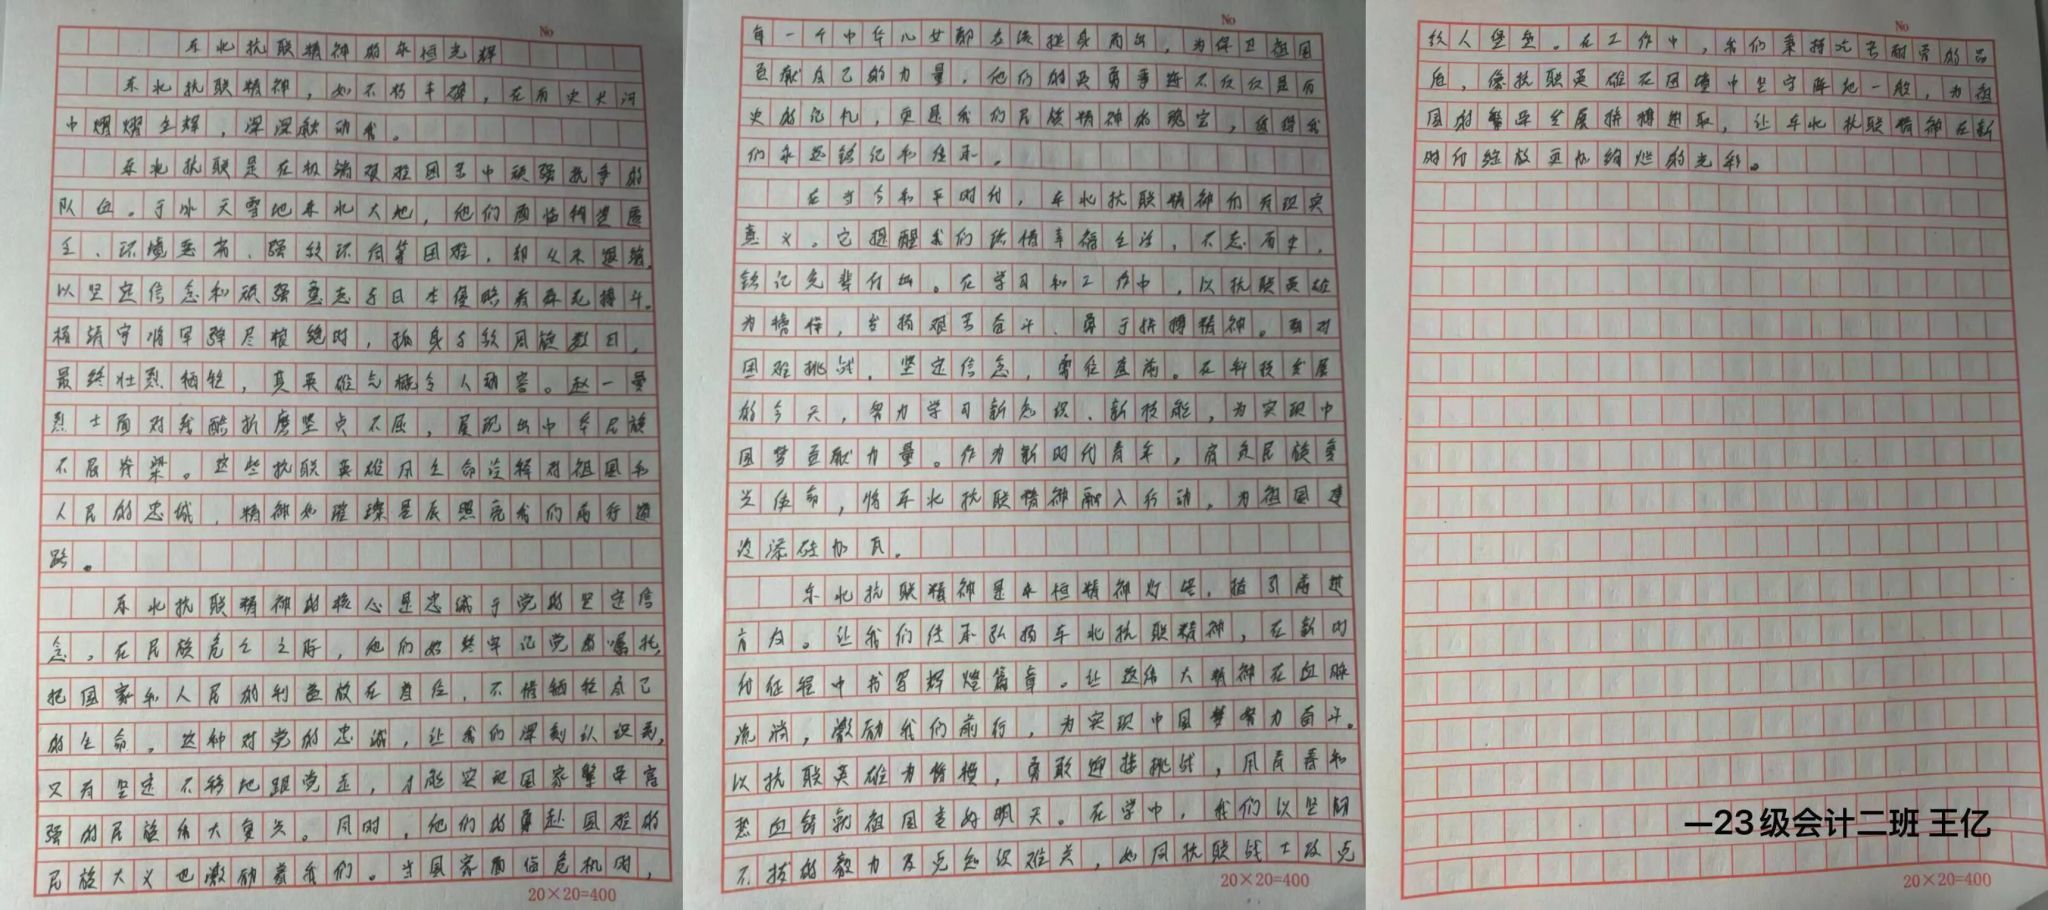 No
东北抗联精神的永恒光辉
东北抗联精神，如不朽丰碑，在历史长河
中熠熠生辉，深深触动我。
东北抗联是在极端艰难困苦中顽强抗争的
队伍。于冰天雪地东北大地，他们面临物资匮
乏、环境恶劣、强敌环伺等困难，却从未退缩，
以坚定信念和顽强意志与日本侵略者殊死搏斗。
杨靖宇将军弹尽粮绝时，孤身与敌周旋数日，
最终壮烈牺牲，其英雄气概令人动容。赵一曼
烈士面对残酷折磨坚贞不屈，展现出中华民族
不屈脊梁。这些抗联英雄用生命诠释对祖国和
人民的忠诚，精神如璀璨星辰照亮我们前行道
路。
东北抗联精神的核心是忠诚于党的坚定信
念，在民族危亡之际，他们始终牢记党的嘱托，
把国家和人民的利益放在首位，不惜牺牲自己
的生命。这种对党的忠诚，让我们深刻认识到，
只有坚定不移地跟党走，才能实现国家繁荣富
强的民族伟大复兴。同时，他们的勇赴国难的
民族大义也激励着我们。当国家面临危机时，
20×20=400
No
每一个中华儿女都应该挺身而出，为保卫祖国
贡献自己的力量。他们的英勇事迹不仅仅是历
史的记忆，更是我们民族精神的瑰宝，值得我
们永远铭记和传承。
在当今和平时代，东北抗联精神仍有现实
意义。它提醒我们珍惜幸福生活，不忘历史，
铭记先辈付出。在学习和工作中，以抗联英雄
为榜样，发扬艰苦奋斗、勇于拼搏精神。面对
困难挑战，坚定信念，勇往直前。在科技发展
的今天，努力学习新知识、新技能，为实现中
国梦贡献力量。作为新时代青年，肩负民族复
兴使命，将东北抗联精神融入行动，为祖国建
设添砖加瓦。
东北抗联精神是永恒精神灯塔，指引前进
方向。让我们传承弘扬东北抗联精神，在新时
代征程中书写辉煌篇章。让这伟大精神在血脉
流淌，激励我们前行，为实现中国梦努力奋斗。
以抗联英雄为楷模，勇敢迎接挑战，用青春和
热血铸就祖国美好明天。在学中，我们以坚韧
不拔的毅力攻克知识难关，如同抗联战士攻克
20×20=400
No
敌人堡垒。在工作中，我们秉持吃苦耐劳的品
质，像抗联英雄在困境中坚守阵地一般，为祖
国的繁荣发展拼搏进取，让东北抗联精神在新
时代绽放更加绚烂的光彩。
—23级会计二班 王亿
20×20=400